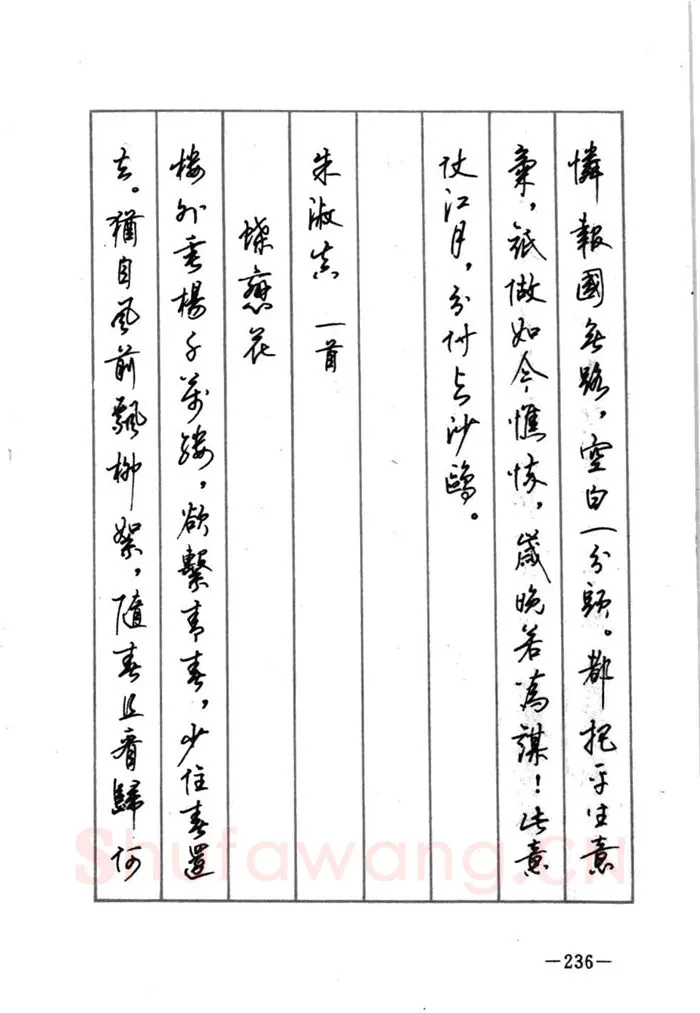 憐報國無路，空白一分頭。都把平生意
氣，祇做如今憔悴，歲晚若為謀！此意
仗江月，分付与沙鷗。
朱淑真 一首
蝶戀花
楼外垂楊千萬縷，欲繫青春，少住春還
去。猶自風前飄柳絮，隨春且看歸何
—236—
Shufawang.CN